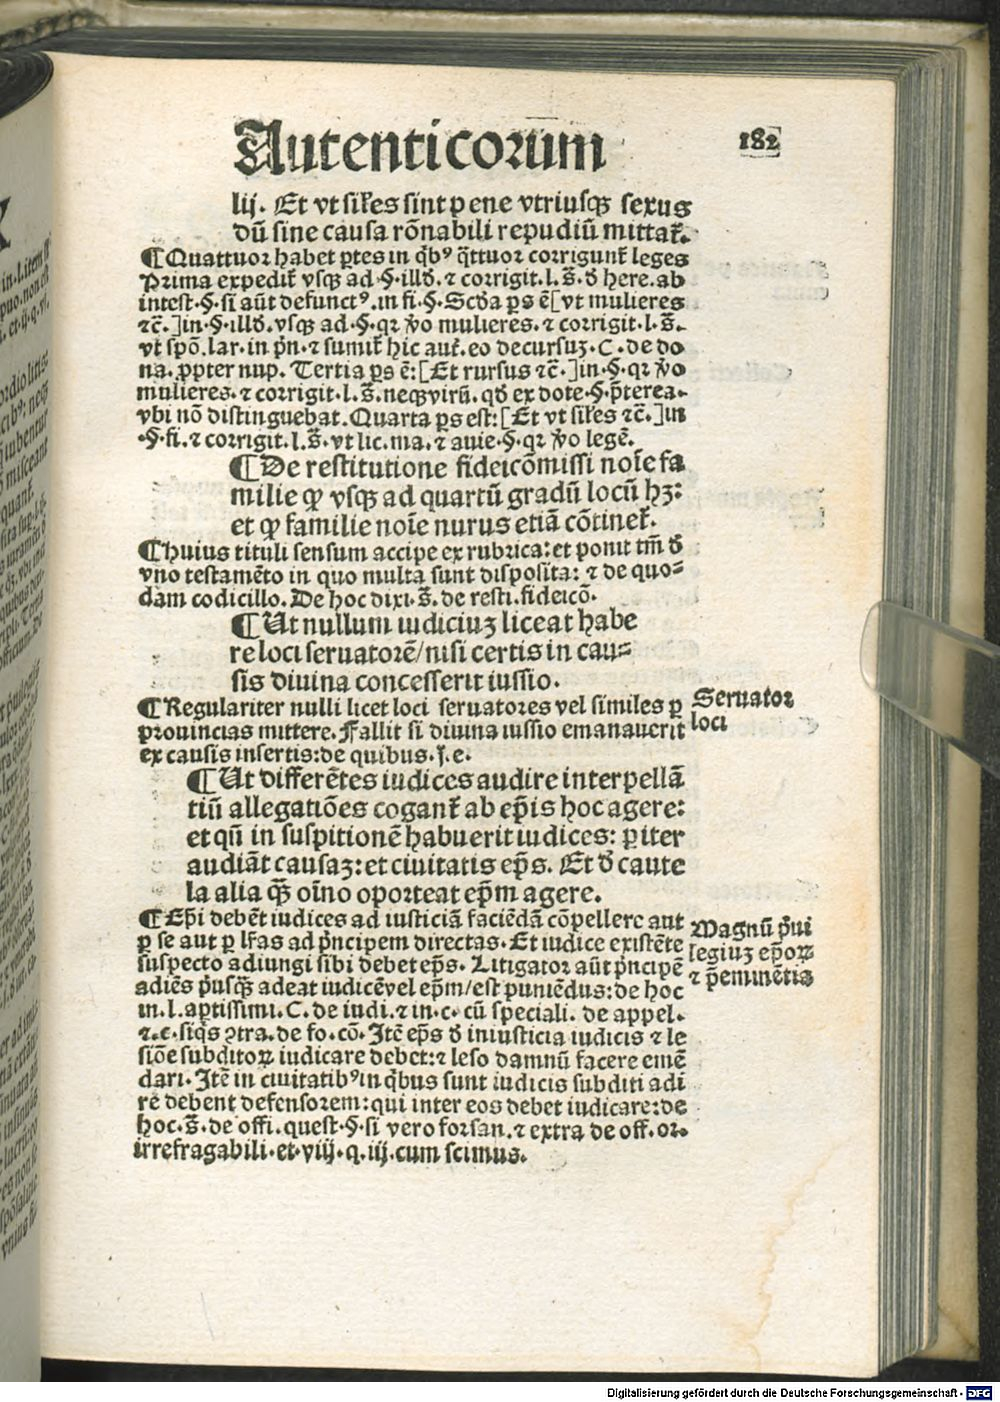 Autenticorum 182
lij. Et vt sil̃es sint p̱ ene vtriusqꝫ sexus
dũ sine causa rõnabili repudiũ mittat᷑.
¶ Quattuor habet ꝑtes in qͥbꝰ q̃ttuor corrigunt᷑ leges
Prima expedit᷑ vsqꝫ ad .§. illð. ⁊ corrigit. l. s̃. ð here. ab
intest .§. si aũt defunctꝰ. in fi .§. Scða ꝑs ẽ [vt mulieres
⁊c̃.] in .§. illð. vsqꝫ ad .§. qꝛ v̾o mulieres. ⁊ corrigit. l. s̃.
vt spõ. lar. in pͥn. ⁊ sumit᷑ hic aut᷑. eo decursuꝫ. C. de do
na. ꝓpter nup. Tertia ꝑs ẽ: [Et rursus ⁊c̃.] in .§. qꝛ v̾o
mulieres. ⁊ corrigit. l. s̃. neqꝫ virũ. qð ex dote .§. p̃terea.
vbi nõ distinguebat. Quarta ꝑs est: [Et vt sil̃es ⁊c̃.] in
.§. fi. ⁊ corrigit. l. s̃. vt lic. ma. ⁊ auie .§. qꝛ v̾o legẽ.
¶ De restitutione fideicõmissi noĩe fa
milie ꝙ vsqꝫ ad quartũ gradũ locũ hꝫ:
et ꝙ familie noĩe nurus etiã cõtinet᷑.
¶ Huius tituli sensum accipe ex rubrica: et ponit tm̃ ð
vno testamẽto in quo multa sunt disposita: ⁊ de quo⸗
dam codicillo. De hoc dixi. s̃. de resti. fideicõ.
¶ Ut nullum iudiciuꝫ liceat habe
re loci seruatorẽ/ nisi certis in cau⸗
sis diuina concesserit iussio.
¶ Regulariter nulli licet loci seruatores vel similes ꝑ
prouincias mittere. Fallit si diuina iussio emanauerit
ex causis insertis: de quibus. j. e.
Seruator
loci
¶ Ut differẽtes iudices audire interpellã
tiũ allegatiões cogant᷑ ab ep̃is hoc agere:
et qũ in suspitionẽ habuerit iudices: ꝑiter
audiãt causaꝫ: et ciuitatis ep̃s. Et ð caute
la alia qꝫ̃ oĩno oporteat ep̃m agere.
¶ Ep̃i debẽt iudices ad iusticiã faciẽdã cõpellere aut
ꝑ se aut ꝑ lr̃as ad pͥncipem directas. Et iudice existẽte
suspecto adiungi sibi debet ep̃s. Litigator aũt pͥncipẽ
adiẽs pͥusqꝫ̃ adeat iudicẽ vel ep̃m/ est puniẽdus: de hoc
in. l. aꝑtissimi. C. de iudi. ⁊ in. c. cũ speciali. de appel.
⁊. c. siqͥs ꝯtra. de fo. cõ. Itẽ ep̃s ð iniusticia iudicis ⁊ le
siõe subditoꝝ iudicare debet: ⁊ leso damnũ facere emẽ
dari. Itẽ in ciuitatibꝰ in qͥbus sunt iudicis subditi adi
re debent defensorem: qui inter eos debet iudicare: de
hoc. s̃. de offi. quest .§. si vero forsan. ⁊ extra de off. or.
irrefragabili. et. viij. q. iij. cum scimus.
Magnũ pͥui
legiuꝫ ep̃oꝝ
⁊ p̃eminẽtia
Digitalisierung gefördert durch die Deutsche Forschungsgemeinschaft - DFG